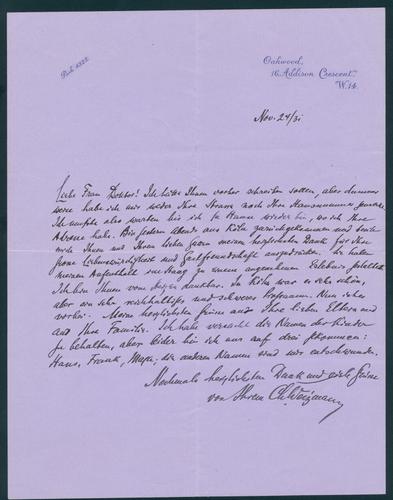 Park 4222.
Oakwood,
16, Addison Crescent,
W.14.
Nov. 24/31
Liebe Frau Doktor! Ich hätte Ihnen vorher schreiben sollen, aber dummer
weise habe ich mir weder Ihre Strasse noch Ihre Hausnummer gemerkt.
Ich musste also warten bis ich zu Hause wieder bin, wo ich Ihre
Adresse habe. Bin gestern abends aus Köln zurückgekommen und beeile
mich Ihnen und Ihrem lieben Gatten meinen herzlichsten Dank für Ihre
grosse Liebenswürdigkeit und Gastfreundschaft auszudrücken. Sie haben
meinen Aufenthalt zu einem angenehmen Erlebnis gestaltet.
Ich bin Ihnen von Herzen dankbar. In Köln war es sehr schön,
aber ein sehr reichhaltiges und schweres Programm. Nun ist es
vorbei. Meine herzlichsten Grüsse an Ihre lieben Eltern und
an Ihre Familie. Ich habe versucht die Namen der Kinder
zu behalten, aber leider bin ich nur auf drei gekommen:
Hans, Frank, die anderen Namen sind mir entschwunden.
Nochmals herzlichsten Dank und viele Grüsse
von Ihrem Ch. Weizmann